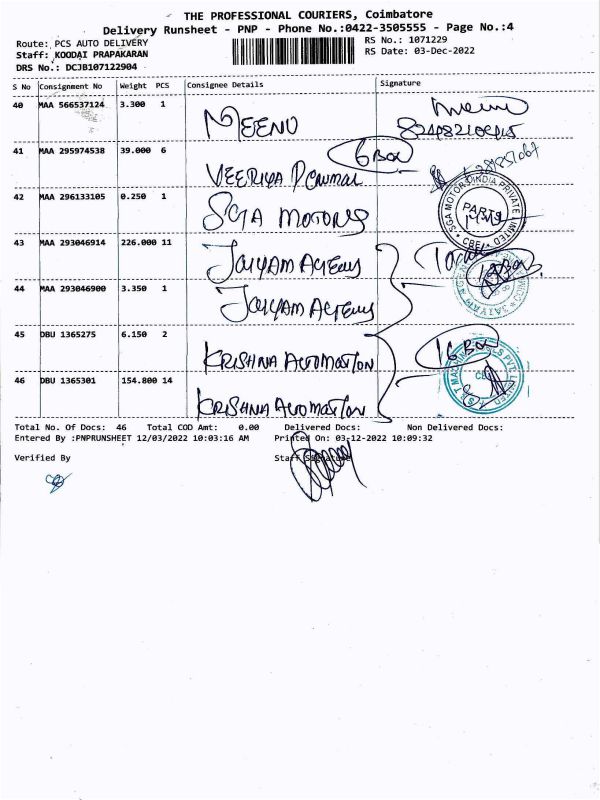 THE PROFESSIONAL COURIERS, Coimbatore
Delivery Runsheet - PNP - Phone No.:0422-3505555 - Page No.:4
Route: PCS AUTO DELIVERY
RS No.: 1071229
Staff: KOODAI PRAPAKARAN
RS Date: 03-Dec-2022
DRS No.: DCJB107122904
S No Consignment No Weight PCS Consignee Details Signature
40 MAA 566537124 3.300 1 MEENU
41 MAA 295974538 39.000 6 VEERIYA PERUMAL 6 Box
42 MAA 296133105 0.250 1 SGA MOTORS SGA MOTORS INDIA PRIVATE LIMITED
43 MAA 293046914 226.000 11 JAIYAM Total 12 Box
44 MAA 293046900 3.350 1 JAIYAM
45 DBU 1365275 6.150 2 KRISHNA AUTOMATION 16 Box
46 DBU 1365301 154.800 14 KRISHNA AUTOMATION PVT. LIMITED
Total No. Of Docs: 46 Total COD Amt: 0.00 Delivered Docs: Non Delivered Docs:
Entered By :PNPRUNSHEET 12/03/2022 10:03:16 AM Printed On: 03-12-2022 10:09:32
Verified By Staff Signature